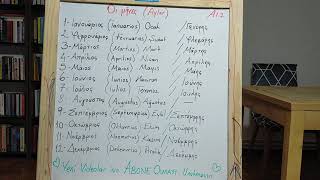 Οι μήνες (Aylar) A1.2
1- Ιανουάριος (Ianuarios) Ocak / Γενάρης
2- Φεβρουάριος (Fevruarios) Şubat / Φλεβάρης
3- Μάρτιος (Martios) Mart / Μάρτης
4- Απρίλιος (Aprilios) Nisan / Απρίλης
5- Μάιος (Maios) Mayıs / Μάης
6- Ιούνιος (Iunios) Haziran / Ιούνης
7- Ιούλιος (Iulios) Temmuz / Ιούλης
8- Αύγουστος (Avgustos) Ağustos /
9- Σεπτέμβριος (Septemvrios) Eylül / Σεπτέμβρης
10- Οκτώβριος (Oktovrios) Ekim / Οκτώβρης
11- Νοέμβριος (Noemvrios) Kasım / Νοέμβρης
12- Δεκέμβριος (Dekemvrios) Aralık / Δεκέμβρης
Yeni Videolar için ABONE Olmayı Unutmayın